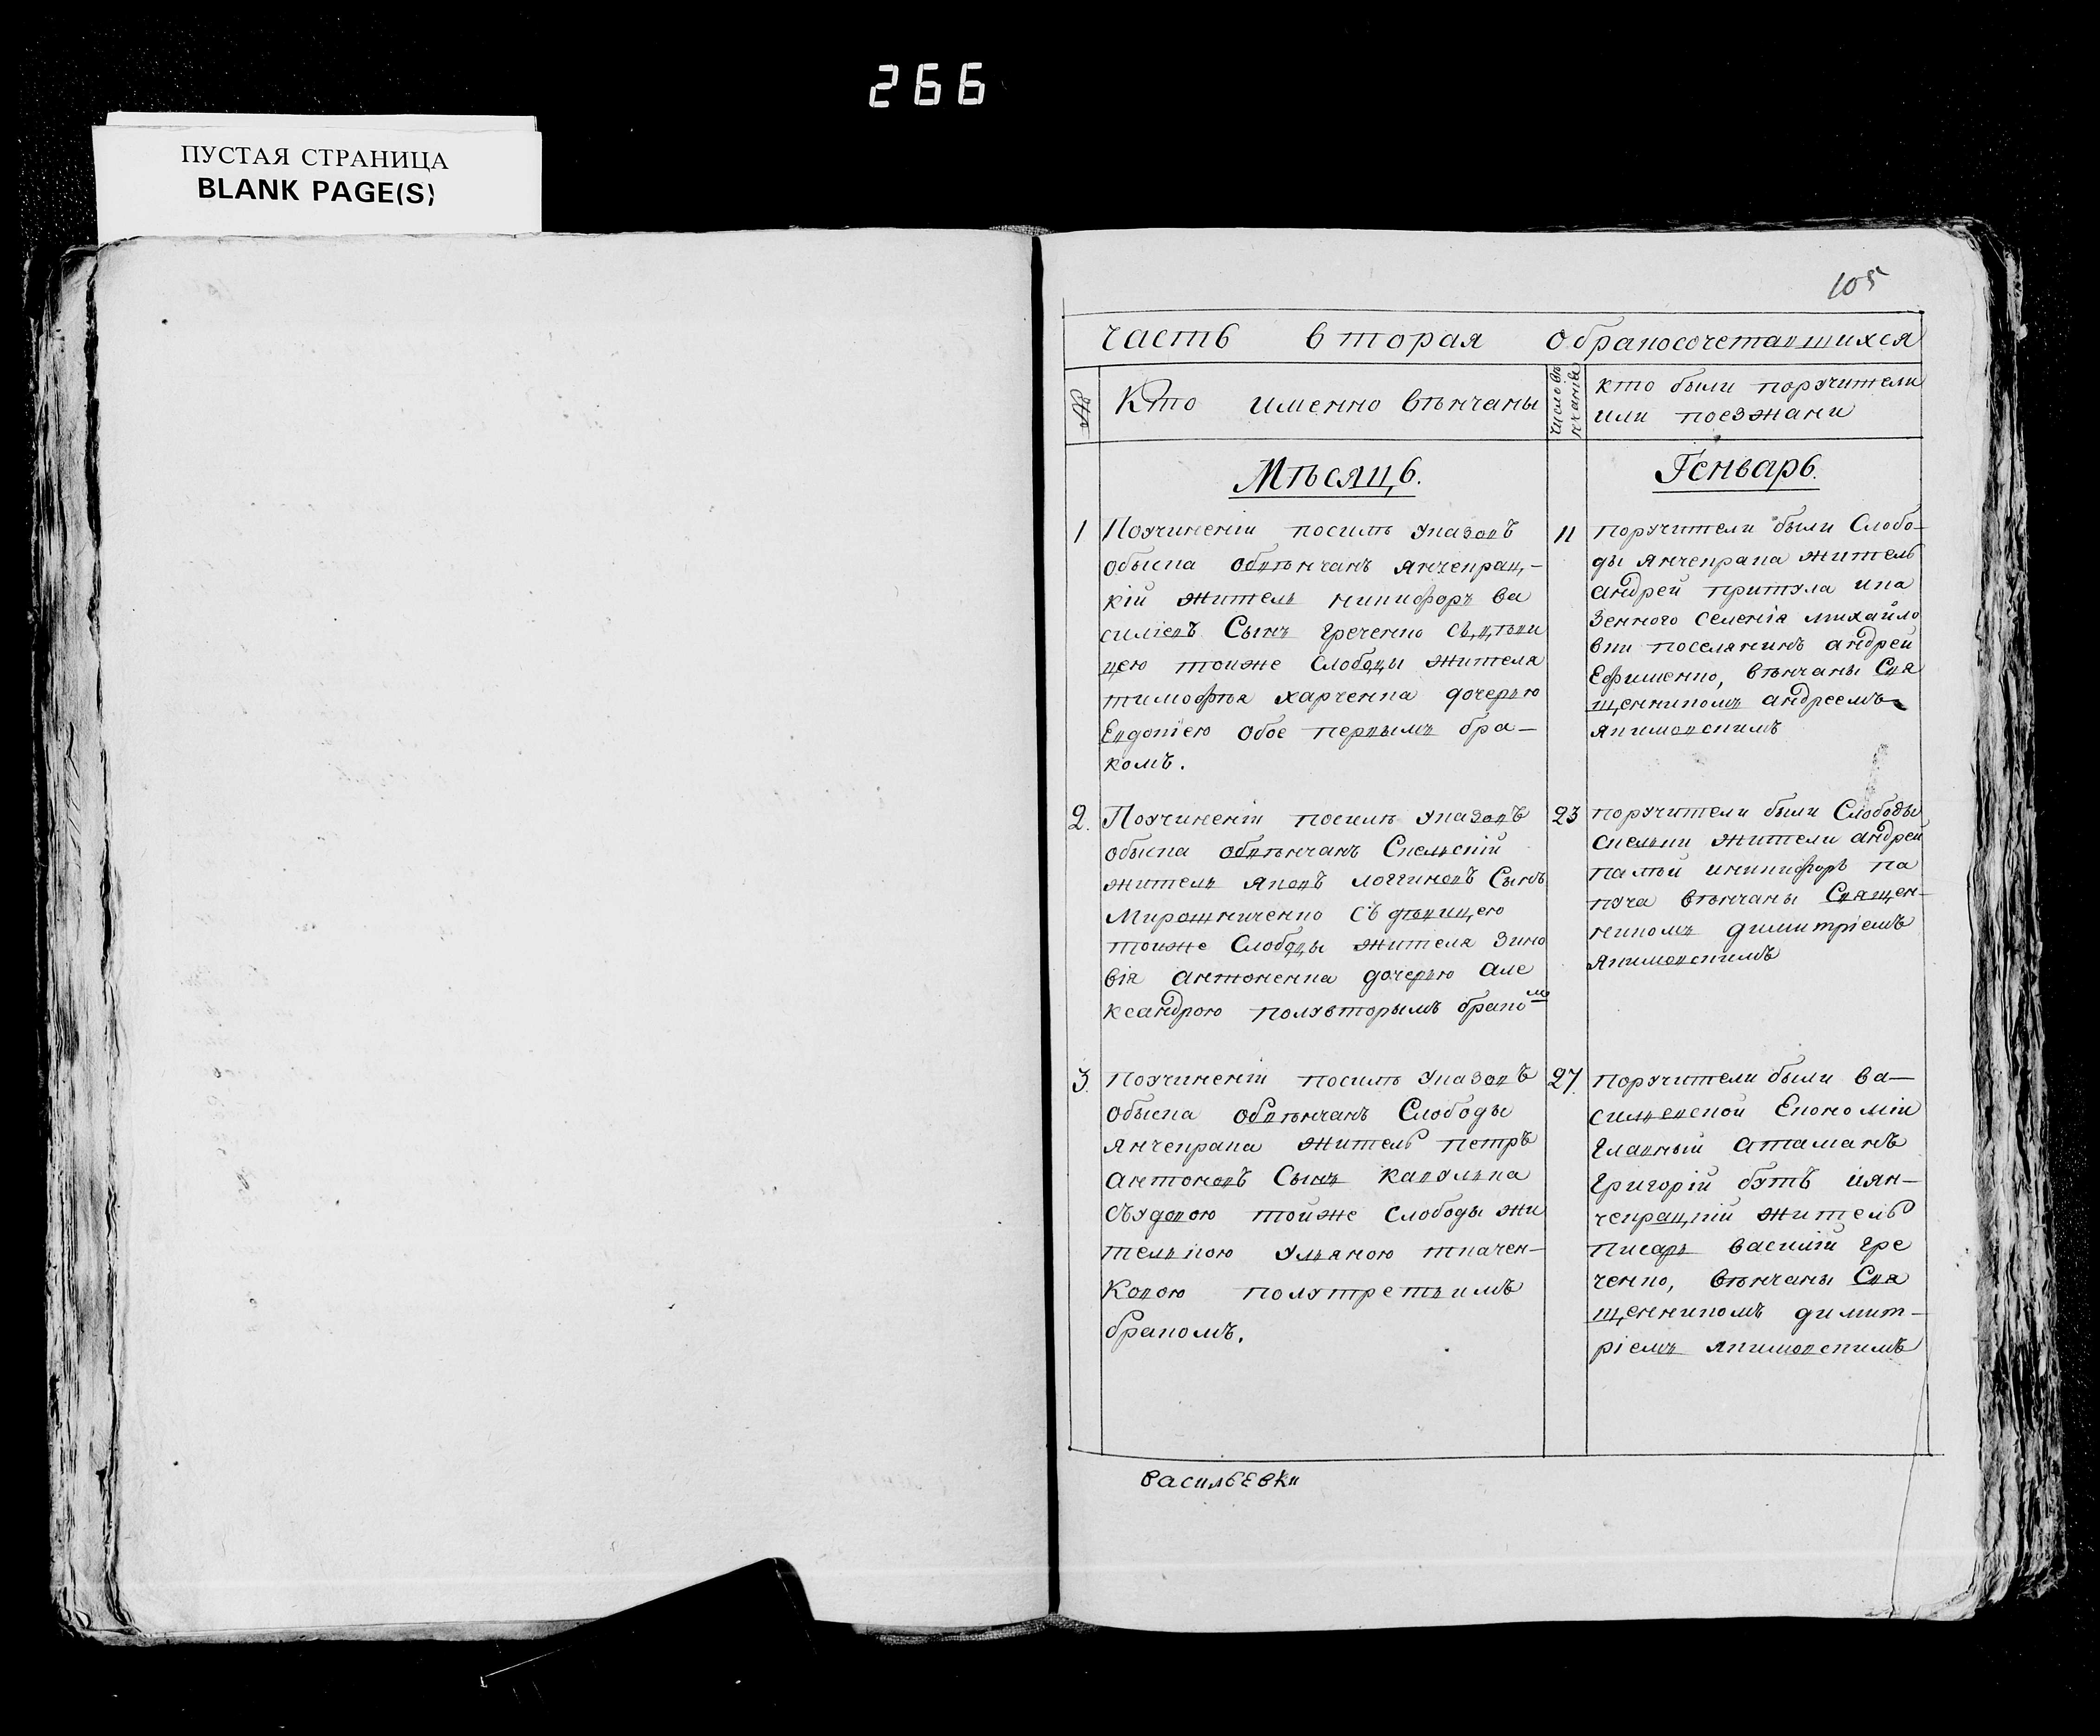 266
ПУСТАЯ СТРАНИЦА
BLANK PAGE(S)
105
Часть вторая обракосочетавшихся
№
Кто именно вѣнчаны
число вѣнчанія
кто были поручители
или поезжани
Мѣсяцъ.
Генварь.
1 Поучиненіи посилѣ указовъ
обыска обвѣнчанъ Янчекрац-
кій житель никифоръ ва
силіевъ Сынъ Гречечко
тоиже Слободы жителя
тимофѣя харченка дочерью
Евдокіею обое первымъ бра-
комъ.
11 поручители были Слобо-
ды янчекрака житель
андрей притула ика
зенного селенія михайло
вки поселянинъ андрей
Ефименко, вѣнчаны Свя
щенникомъ андреемъ
якимовскимъ
2. Поучиненіи посилѣ указовъ
обыска обвѣнчанъ Скельскій
житель яковъ логгиновъ Сынъ
Мирошниченко съ дѣвицею
тоиже Слободы жителя Зино
вія антоненка дочерью але
ксандрою полувторымъ бракомъ
23 поручители были Слободы
скельки жители андрей
палій иникифоръ па
пуча вѣнчаны Священ-
никомъ димитріемъ
якимовскимъ
3. Поучиненіи посилѣ указовъ
обыска обвѣнчанъ Слободы
янчекрака житель петръ
антоновъ Сынъ кавулька
съудовою тойже слободы жи
телькою ульяною ткачен-
ковою полутретьимъ
бракомъ.
27. поручители были ва-
сильевской Економіи
главный атаманъ
григорій бутъ иян-
чекрацкій житель
писарь василій гре
ченко, вѣнчаны Свя
щенникомъ димит-
ріемъ якимовскимъ
васильевки